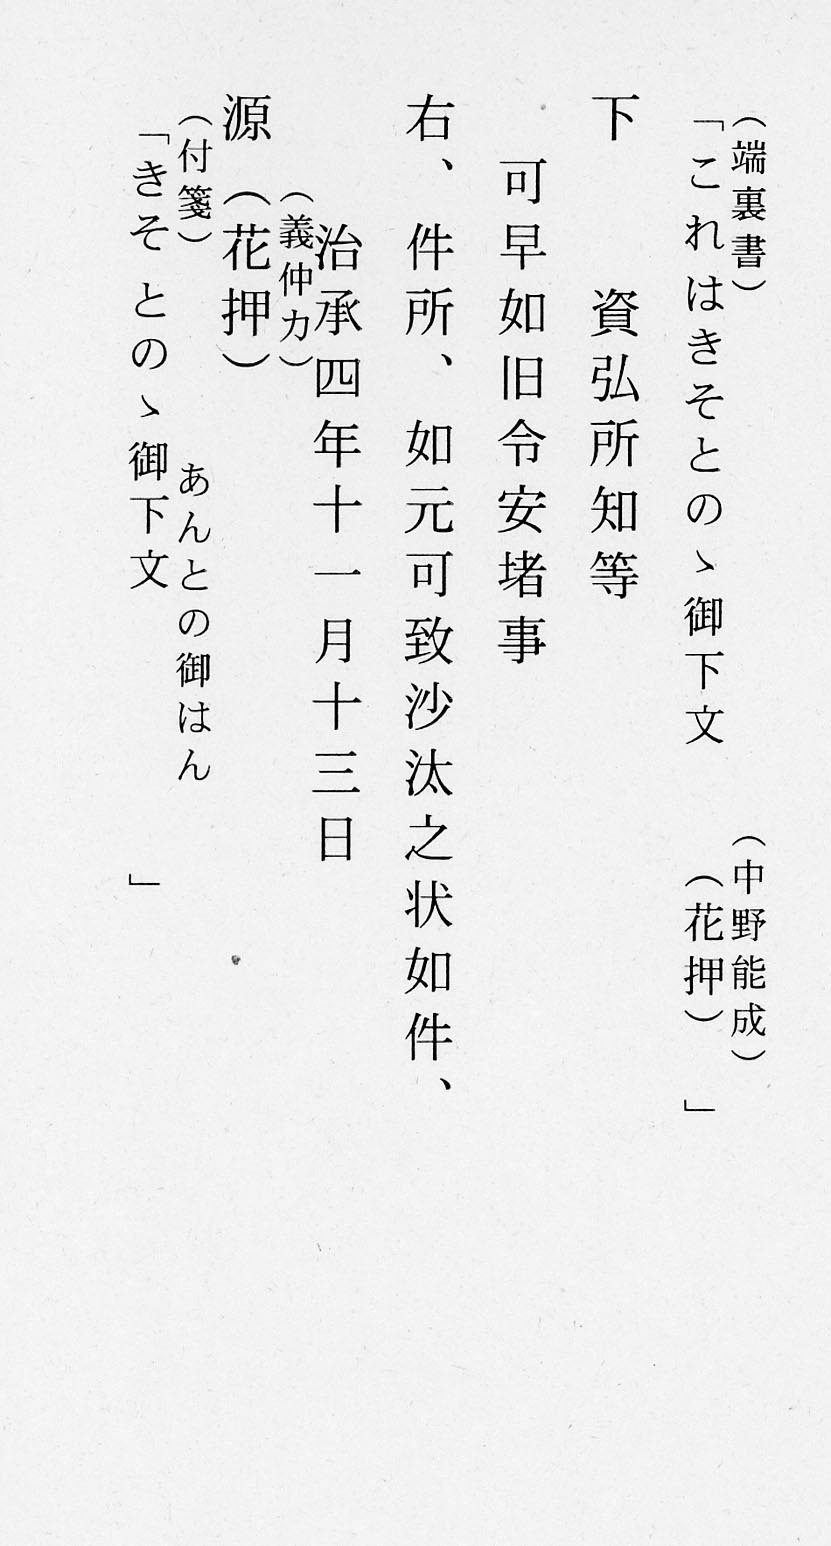 （端裏書）
「これはきそとのゝ御下文
（中野能成）
（花押）」
下　　資弘所知等
可早如旧令安堵事
右、件所、如元可致沙汰之状如件、
治承四年十一月十三日
（義仲カ）
源（花押）
（付箋）
あんとの御はん
「きそとのゝ御下文　」